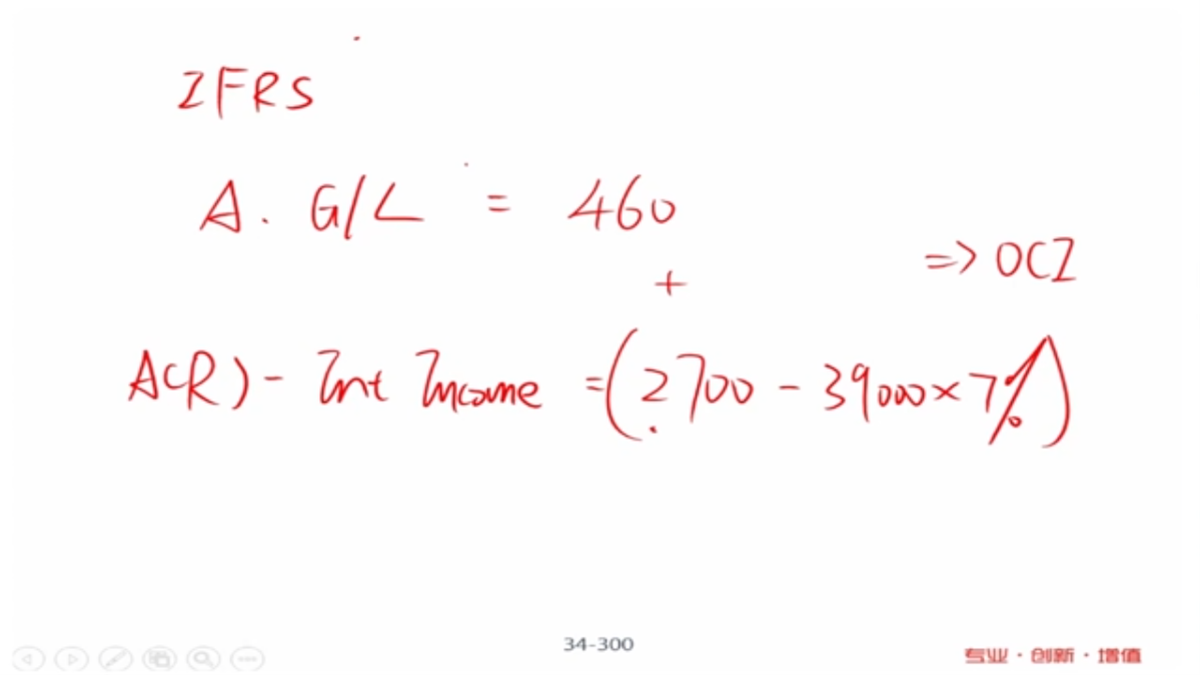 IFRS
A. G/L = 460
+
=> OCI
A(R) - Int Income = (2700 - 39000 × 7%)
34-300
专业 · 创新 · 增值